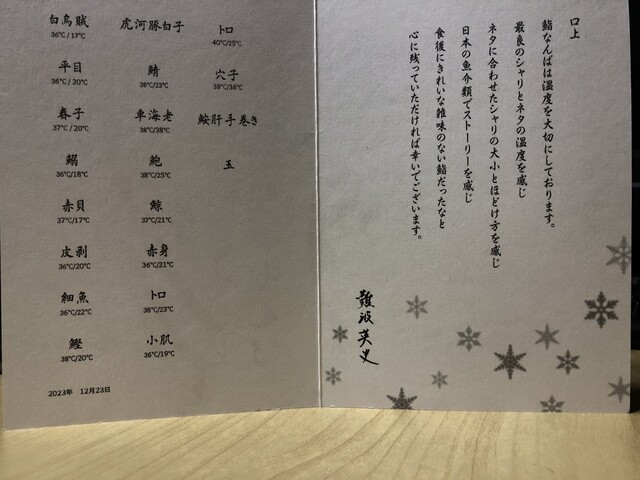 白烏賊
36℃/17℃
平目
36℃/20℃
春子
37℃/20℃
鰯
36℃/18℃
赤貝
37℃/17℃
皮剥
36℃/20℃
細魚
36℃/22℃
鰹
38℃/20℃
虎河豚白子
鯖
38℃/23℃
車海老
38℃/38℃
鮑
38℃/25℃
鯨
37℃/21℃
赤身
36℃/21℃
トロ
38℃/23℃
小肌
36℃/19℃
トロ
40℃/25℃
穴子
38℃/36℃
鮟肝手巻き
玉
2023年 12月23日
口上
鮨なんばは温度を大切にしております。
最良のシャリとネタの温度を感じ
ネタに合わせたシャリの大小とほどけ方を感じ
日本の魚介類でストーリーを感じ
食後にきれいな雑味のない鮨だったなと
心に残っていただければ幸いでございます。
難波英史